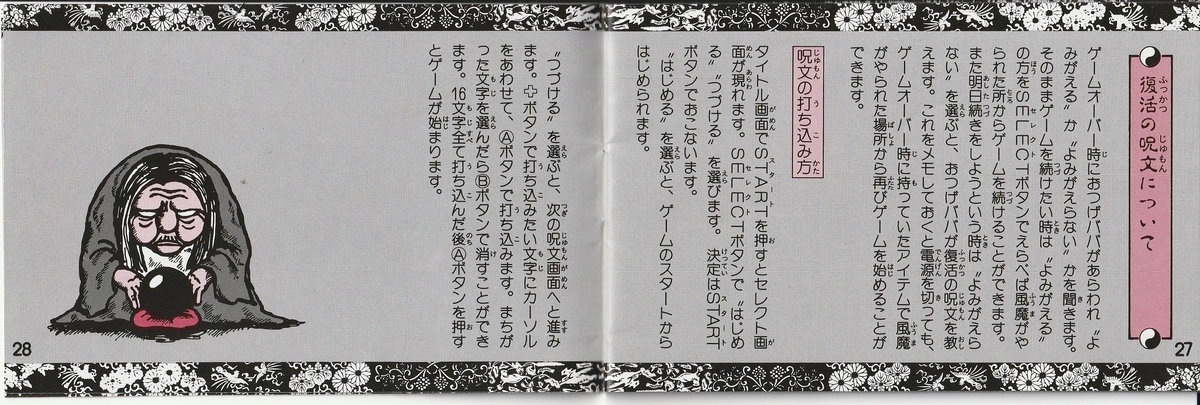 復活の呪文について
ゲームオーバー時におつげババがあらわれ〝よ
みがえる〟か〝よみがえらない〟かを聞きます。
そのままゲームを続けたい時は〝よみがえる〟
の方をSELECTボタンでえらべば風魔がや
られた所からゲームを続けることができます。
また明日続きをしようという時は〝よみがえら
ない〟を選ぶと、おつげババが復活の呪文を教
えます。これをメモしておくと電源を切っても、
ゲームオーバー時に持っていたアイテムで風魔
がやられた場所から再びゲームを始めることが
できます。
呪文の打ち込み方
タイトル画面でSTARTを押すとセレクト画
面が現れます。SELECTボタンで〝はじめ
る〟〝つづける〟を選びます。決定はSTART
ボタンでおこないます。
〝はじめる〟を選ぶと、ゲームのスタートから
はじめられます。
27
〝つづける〟を選ぶと、次の呪文画面へと進み
ます。✚ボタンで打ち込みたい文字にカーソル
をあわせて、Ⓐボタンで打ち込みます。まちが
った文字を選んだらⒷボタンで消すことができ
ます。16文字全て打ち込んだ後Ⓐボタンを押す
とゲームが始まります。
28